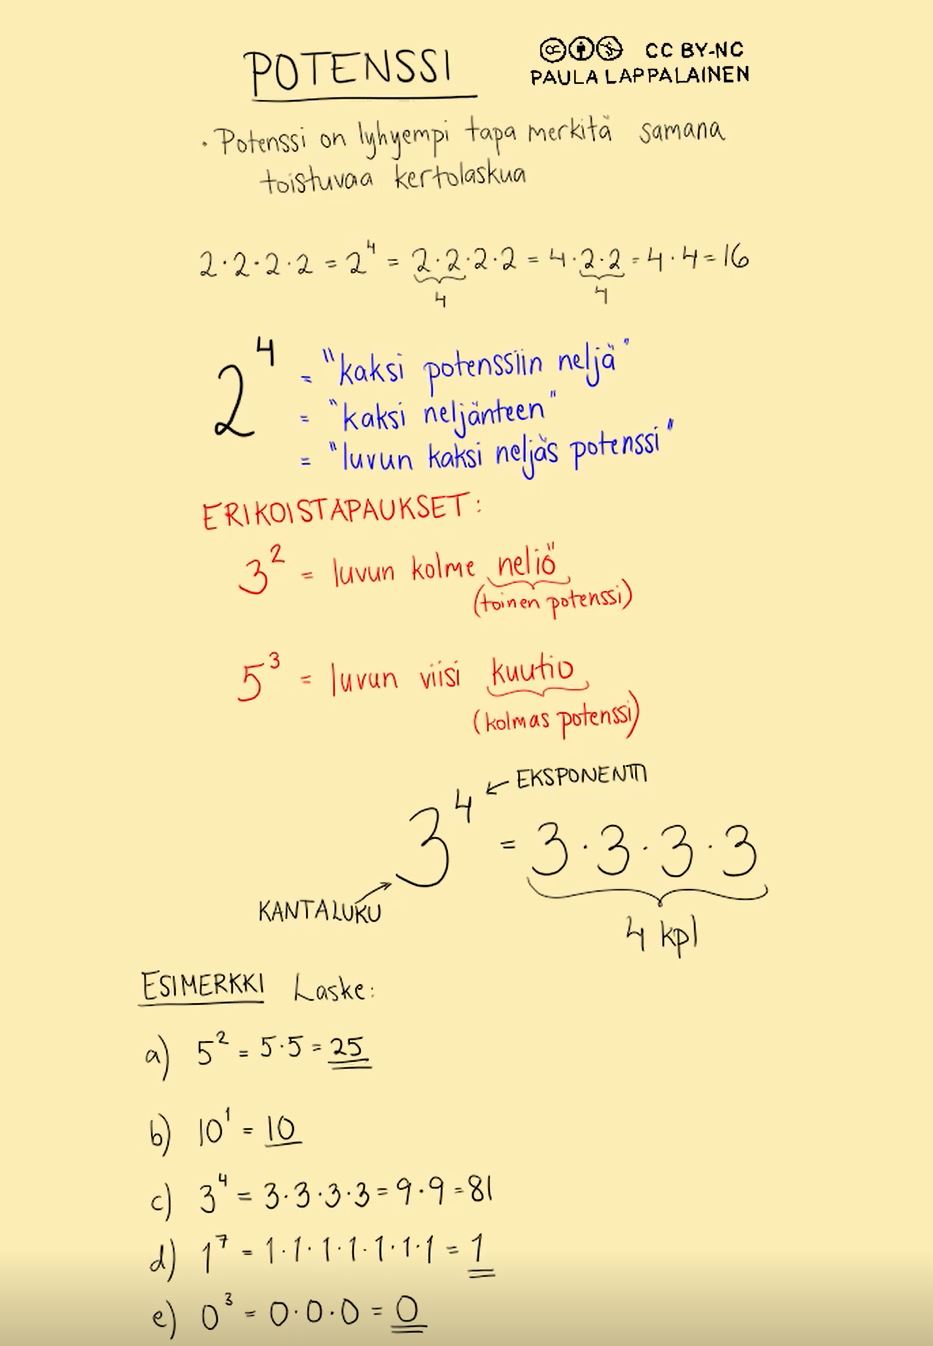 POTENSSI
CC BY-NC
PAULA LAPPALAINEN
· Potenssi on lyhyempi tapa merkitä samana
toistuvaa kertolaskua
2·2·2·2 = 2⁴ = 2·2·2·2 = 4·2·2 = 4·4 = 16
4 4
2⁴ = "kaksi potenssiin neljä"
= "kaksi neljänteen"
= "luvun kaksi neljäs potenssi"
ERIKOISTAPAUKSET:
3² = luvun kolme neliö
(toinen potenssi)
5³ = luvun viisi kuutio
(kolmas potenssi)
EKSPONENTTI
3⁴ = 3·3·3·3
KANTALUKU
4 kpl
ESIMERKKI Laske:
a) 5² = 5·5 = 25
b) 10¹ = 10
c) 3⁴ = 3·3·3·3 = 9·9 = 81
d) 1⁷ = 1·1·1·1·1·1·1 = 1
e) 0³ = 0·0·0 = 0